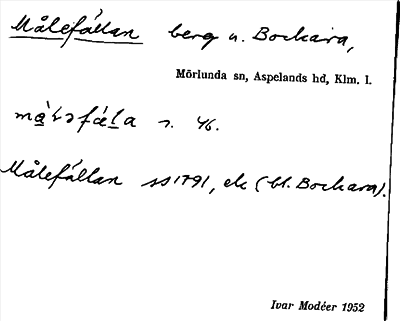 Målefállan berg u. Bockara,
Mörlunda sn, Aspelands hd, Klm. l.
s. 46.
Målefállan ss 1791, ek (bl. Bockara).
Ivar Modéer 1952